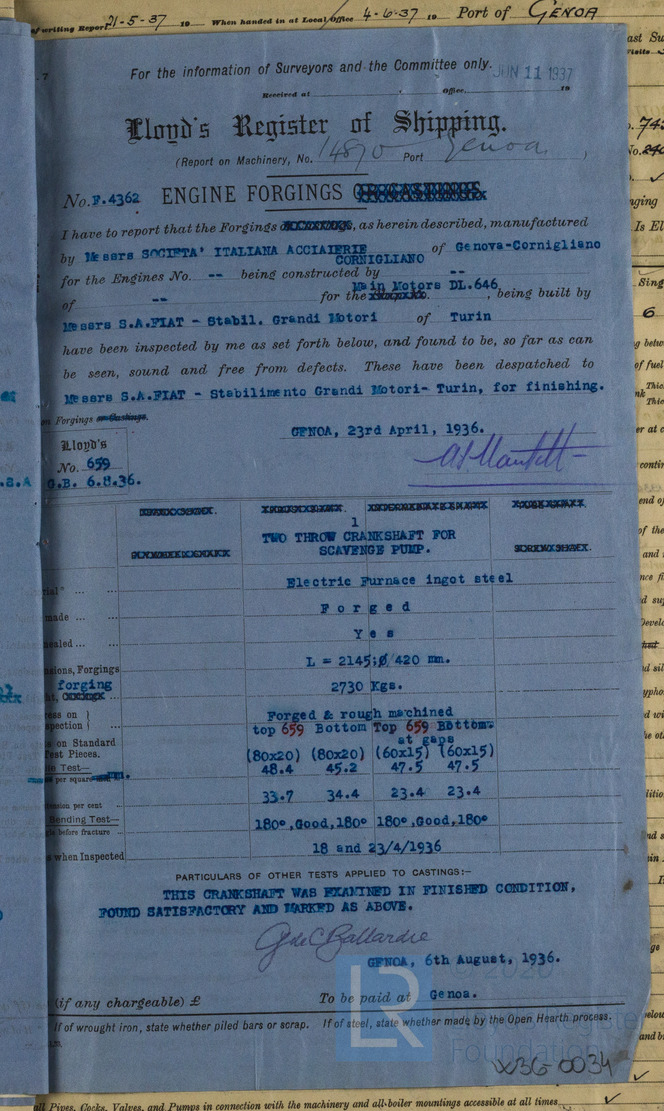 of writing Report 21-5-37 19 When handed in at Local Office 4-6-37 19 Port of GENOA
For the information of Surveyors and the Committee only.
JUN 11 1937
Received at Office, 19
Lloyd's Register of Shipping.
(Report on Machinery, No. 14870 Port Genoa.
No. F.4362 ENGINE FORGINGS OR CASTINGS
I have to report that the Forgings, as herein described, manufactured
by Messrs SOCIETA' ITALIANA ACCIAIERIE CORNIGLIANO of Genova-Cornigliano
for the Engines No. -- being constructed by --
of -- for the Main Motors DL.646, being built by
Messrs S.A.FIAT - Stabil. Grandi Motori of Turin
have been inspected by me as set forth below, and found to be, so far as can
be seen, sound and free from defects. These have been despatched to
Messrs S.A.FIAT - Stabilimento Grandi Motori- Turin, for finishing.
on Forgings or Castings.
GENOA, 23rd April, 1936.
Lloyd's
No. 659
G.B. 6.8.36.
1
TWO THROW CRANKSHAFT FOR
SCAVENGE PUMP.
rial" ... ... Electric Furnace ingot steel
made ... ... Forged
nealed ... ... Yes
sions, Forgings L = 2145;Ø 420 mm.
forging 2730 Kgs.
ess on
spection Forged & rough machined
top 659 Bottom Top 659 Bottom
at gaps
s on Standard
Test Pieces. (80x20) (80x20) (60x15) (60x15)
Test— 48.4 45.2 47.5 47.5
per square mm.
ension per cent 33.7 34.4 23.4 23.4
Bending Test— 180°,Good,180° 180°,Good,180°
before fracture ...
when Inspected 18 and 23/4/1936
PARTICULARS OF OTHER TESTS APPLIED TO CASTINGS:-
THIS CRANKSHAFT WAS EXAMINED IN FINISHED CONDITION,
FOUND SATISFACTORY AND MARKED AS ABOVE.
GENOA, 6th August, 1936.
(if any chargeable) £ To be paid at Genoa.
If of wrought iron, state whether piled bars or scrap. If of steel, state whether made by the Open Hearth process.
LR
© 2020
Foundation
W36-0034
all Pipes, Cocks, Valves, and Pumps in connection with the machinery and all-boiler mountings accessible at all times